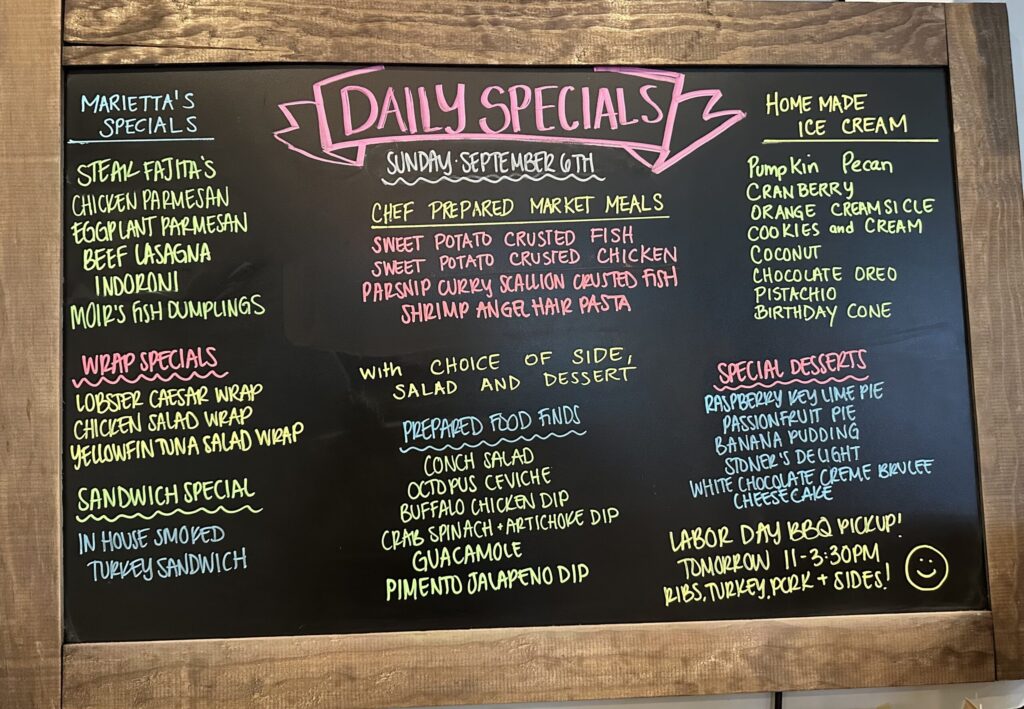 MARIETTA'S
SPECIALS
STEAK FAJITA'S
CHICKEN PARMESAN
EGGPLANT PARMESAN
BEEF LASAGNA
INDORONI
MOIR'S FISH DUMPLINGS
WRAP SPECIALS
LOBSTER CAESAR WRAP
CHICKEN SALAD WRAP
YELLOWFIN TUNA SALAD WRAP
SANDWICH SPECIAL
IN HOUSE SMOKED
TURKEY SANDWICH
DAILY SPECIALS
SUNDAY · SEPTEMBER 6TH
CHEF PREPARED MARKET MEALS
SWEET POTATO CRUSTED FISH
SWEET POTATO CRUSTED CHICKEN
PARSNIP CURRY SCALLION CRUSTED FISH
SHRIMP ANGEL HAIR PASTA
With CHOICE OF SIDE,
SALAD AND DESSERT
PREPARED FOOD FINDS
CONCH SALAD
OCTOPUS CEVICHE
BUFFALO CHICKEN DIP
CRAB SPINACH + ARTICHOKE DIP
GUACAMOLE
PIMENTO JALAPENO DIP
HOME MADE
ICE CREAM
Pumpkin Pecan
CRANBERRY
ORANGE CREAMSICLE
COOKIES and CREAM
COCONUT
CHOCOLATE OREO
PISTACHIO
BIRTHDAY CONE
SPECIAL DESSERTS
RASPBERRY KEY LIME PIE
PASSIONFRUIT PIE
BANANA PUDDING
STONER'S DELIGHT
WHITE CHOCOLATE CREME BRULEE
CHEESECAKE
LABOR DAY BBQ PICKUP!
TOMORROW 11-3:30PM
RIBS, TURKEY, PORK + SIDES!